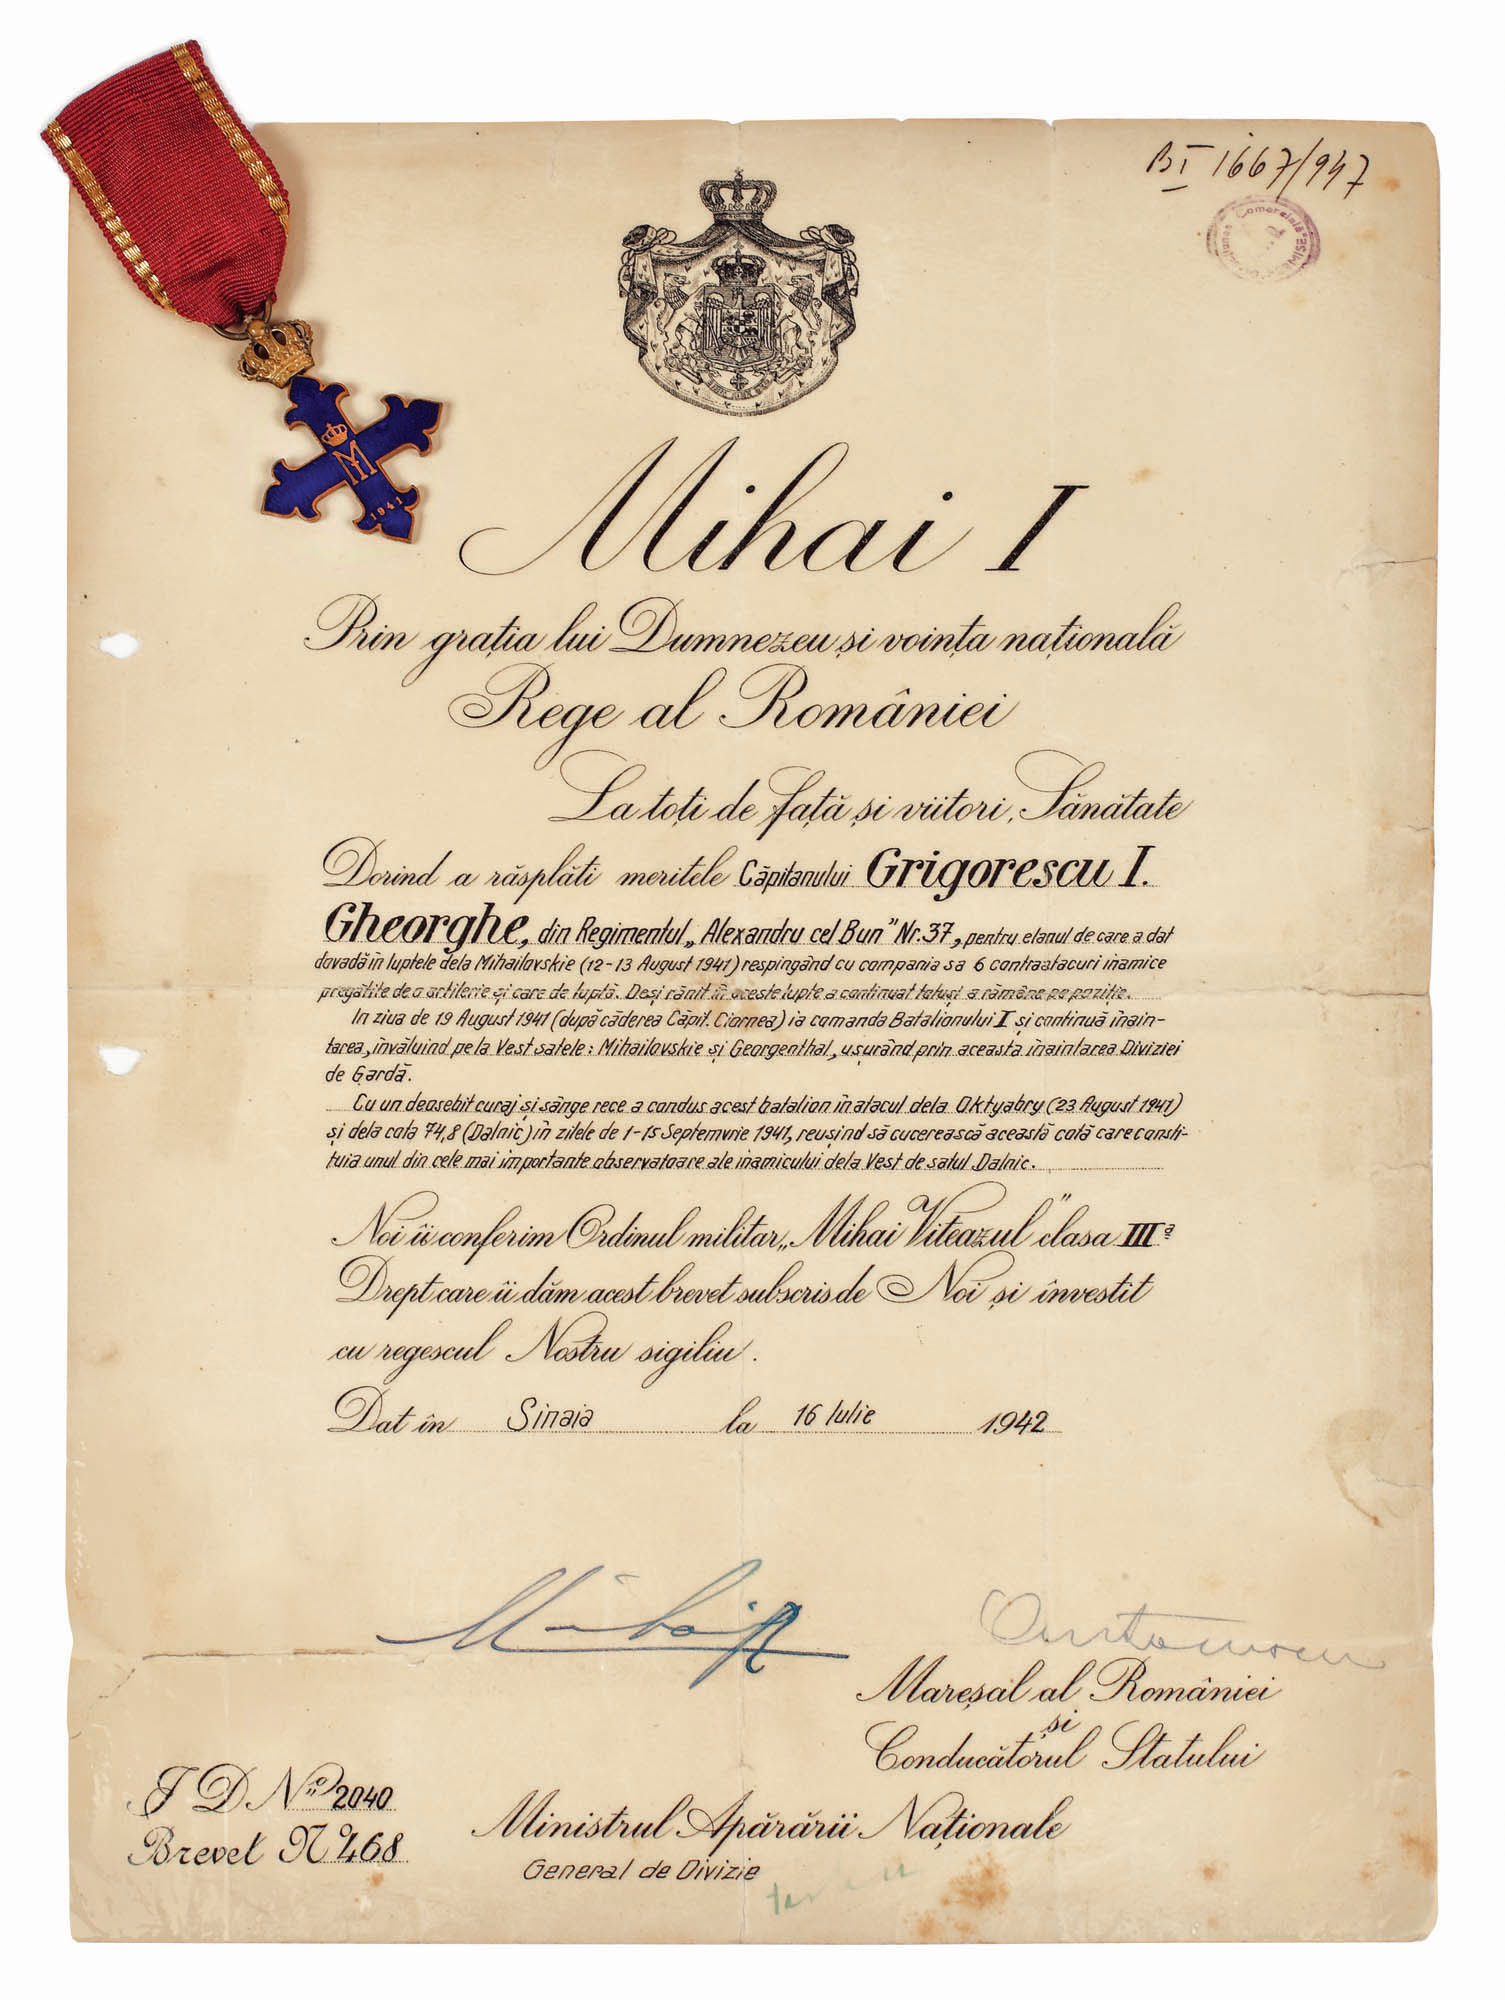 BI 1667/947
Comercială
M
1941
Mihai I
Prin grația lui Dumnezeu și voința națională
Rege al României
La toți de față și viitori, Sănătate
Dorind a răsplăti meritele Căpitanului Grigorescu I.
Gheorghe, din Regimentul „Alexandru cel Bun" Nr. 37, pentru elanul de care a dat
dovadă în luptele dela Mihailovskie (12-13 August 1941) respingând cu compania sa 6 contraatacuri inamice
pregătite de o artilerie și care de luptă. Deși rănit în aceste lupte a continuat totuși a rămâne pe poziție.
In ziua de 19 August 1941 (după căderea Căpit. Ciornea) ia comanda Batalionului I și continuă înain-
tarea, învăluind pe la Vest satele: Mihailovskie și Georgenthal, ușurând prin aceasta înaintarea Diviziei
de Gardă.
Cu un deosebit curaj și sânge rece a condus acest batalion în atacul dela Oktyabry (23 August 1941)
și dela cota 74,8 (Dalnic) în zilele de 1-15 Septemvrie 1941, reușind să cucerească această cotă care consti-
tuia unul din cele mai importante observatoare ale inamicului dela Vest de satul Dalnic.
Noi îi conferim Ordinul militar „Mihai Viteazul" clasa IIIa
Drept care îi dăm acest brevet subscris de Noi și învestit
cu regescul Nostru sigiliu.
Dat în Sinaia la 16 Iulie 1942
Mihai R
Antonescu
Mareșal al României
și
Conducătorul Statului
I D. No 2040
Brevet No 468
Ministrul Apărării Naționale
General de Divizie